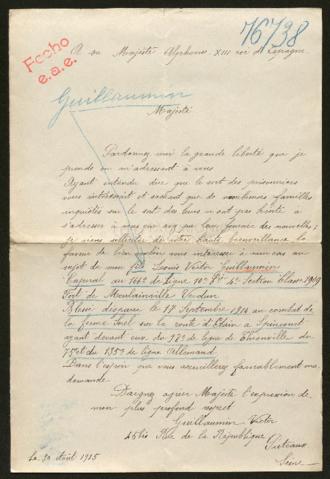 76738
Fecho
e.a.e.
A sa Majesté Alphonse XIII roi d'Espagne
Guillaumin
Majesté
Pardonnez moi la grande liberté que je
prends en m'adressant à vous
Ayant entendu dire que le sort des prisonniers
vous intéressait et sachant que de nombreuses familles
inquiètes sur le sort des leurs n'ont pas hésité à
s'adresser à vous pour avoir des nouvelles;
je viens solliciter de votre haute bienveillance la
faveur de bien vouloir vous intéresser à mon cas au
sujet de mon fils Louis Victor Guillaumin
Caporal au 166e de Ligne 4e Section Classe 1909
Fort de Moulainville Verdun
Blessé disparu le 18 Septembre 1914 au combat de
la ferme Sorel sur la route d'Etain à Spincourt
ayant devant eux du 18e de ligne de Thionville du
et du 135e de ligne Allemand
Dans l'espoir que vous accueillerez favorablement ma
demande
Daignez agréer Majesté l'expression de
mon plus profond respect
Guillaumin Victor
45 bis Rue de la République
Puteaux
Seine
Le 30 Août 1915